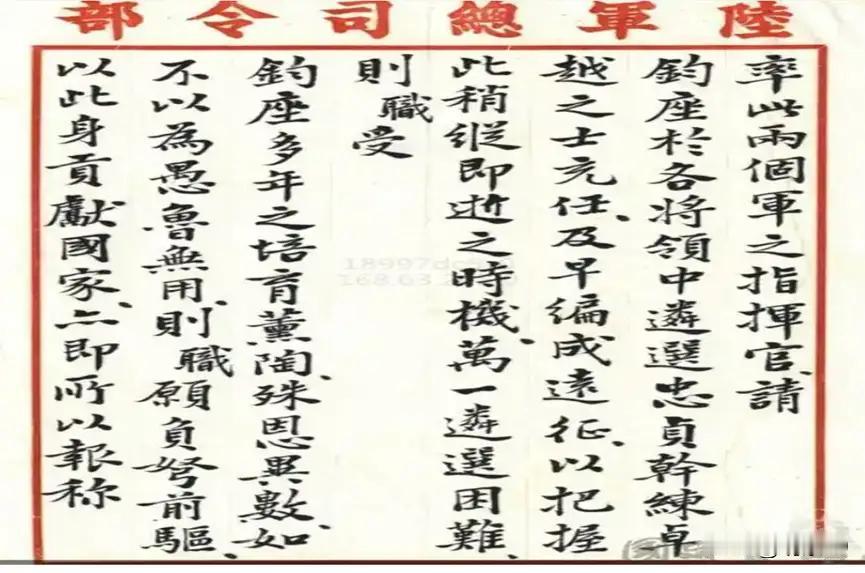 陸軍總司令部
率此兩個軍之指揮官、請
鈞座於各將領中遴選忠貞幹練卓
越之士充任、及早編成遠征、以把握
此稍縱即逝之時機、萬一遴選困難、
則職受
鈞座多年之培育薰陶、殊恩異數、如
不以為愚魯無用、則職願負弩前驅、
以此身貢獻國家、亦即所以報称